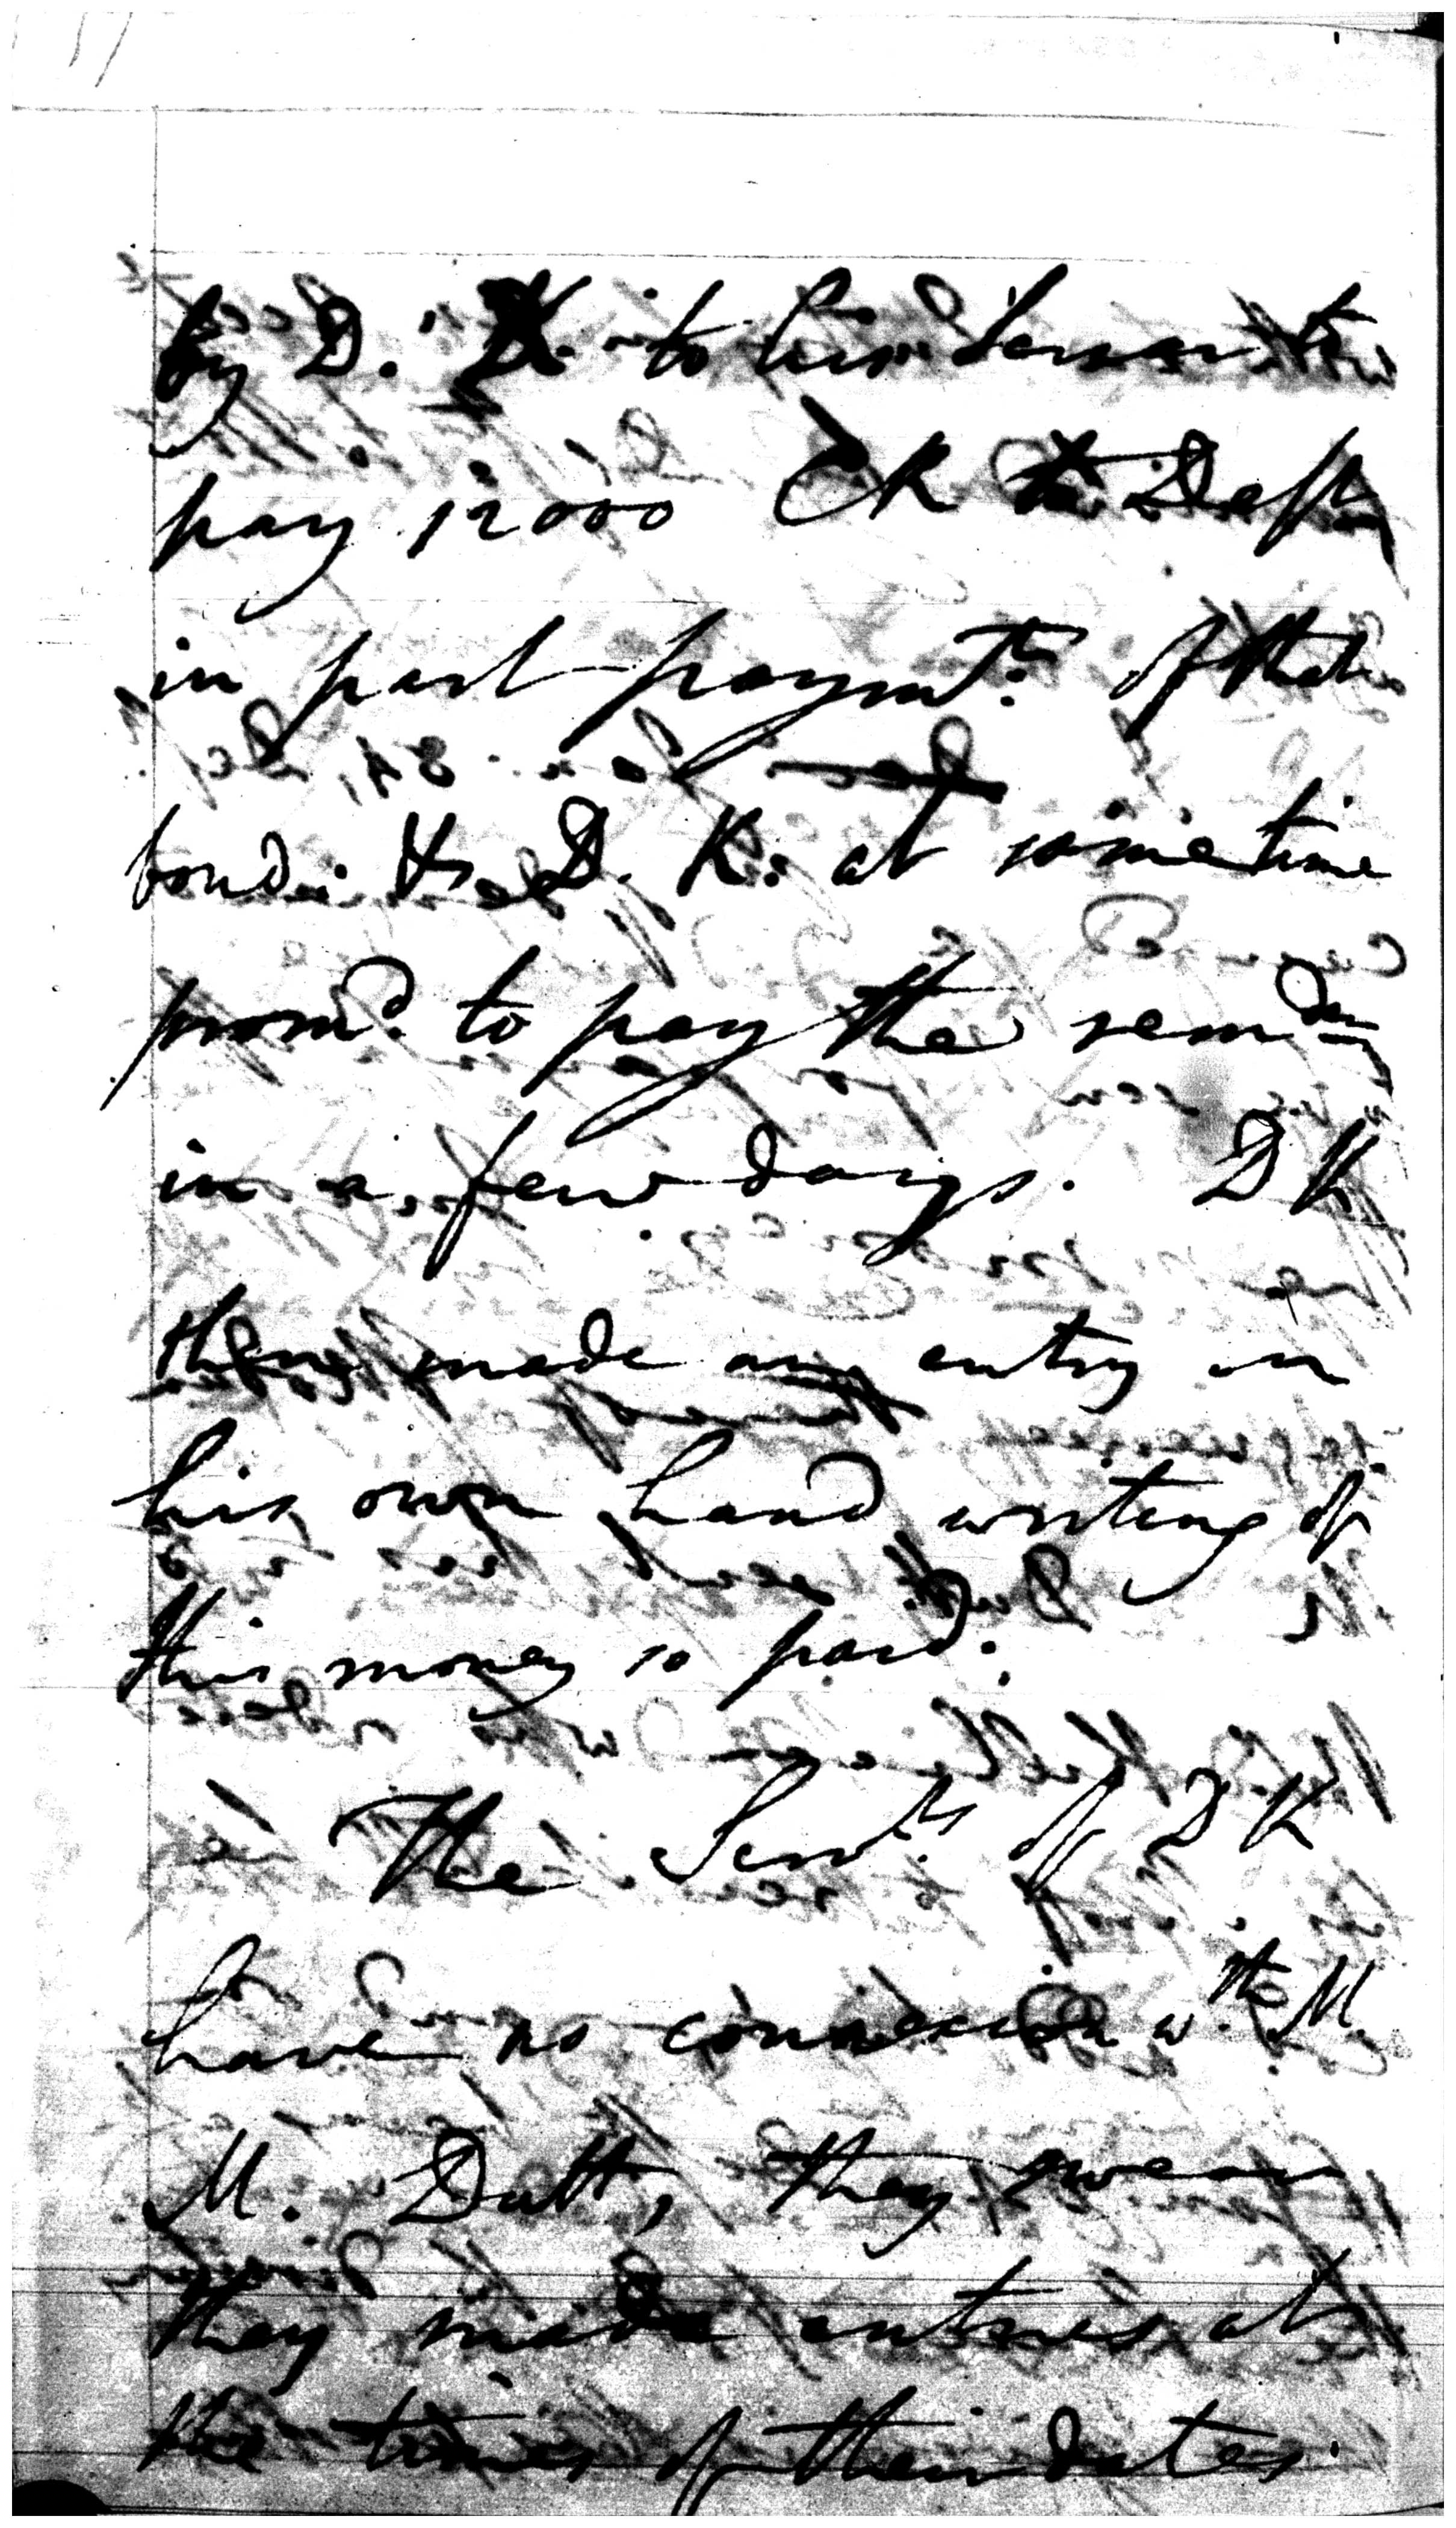 by D. K. to his Servant to
pay 12000 CR to Deft
in part paymt. of that
bond. & D. K. at sometime
promd. to pay the remdr
in a few days. D K
then made an entry in
his own hand writing of
this money so paid.
The Servts of D K
have no connexion wth. M
M. Dutt, they swear
they made entries at
the times of their dates.